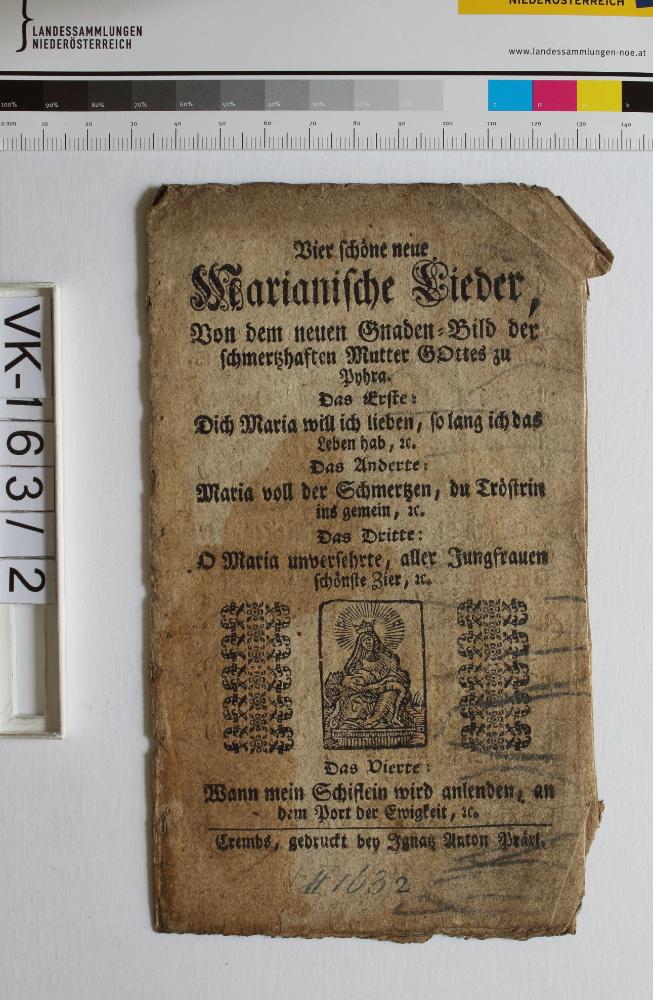 LANDESSAMMLUNGEN
NIEDERÖSTERREICH
NIEDERÖSTERREICH
www.landessammlungen-noe.at
100% 90% 80% 70% 60% 50% 40% 30% 20% 10% c m y k
0 mm 10 20 30 40 50 60 70 80 90 100 110 120 130 140
VK-163/2
Vier schöne neue
Marianische Lieder,
Von dem neuen Gnaden-Bild der
schmertzhaften Mutter GOttes zu
Pyhra.
Das Erste:
Dich Maria will ich lieben, so lang ich das
Leben hab, ꝛc.
Das Anderte:
Maria voll der Schmertzen, du Tröstrin
ins gemein, ꝛc.
Das Dritte:
O Maria unversehrte, aller Jungfrauen
schönste Zier, ꝛc.
Das Vierte:
Wann mein Schiflein wird anlenden, an
dem Port der Ewigkeit, ꝛc.
Crembs, gedruckt bey Ignatz Anton Präxl.
163 2